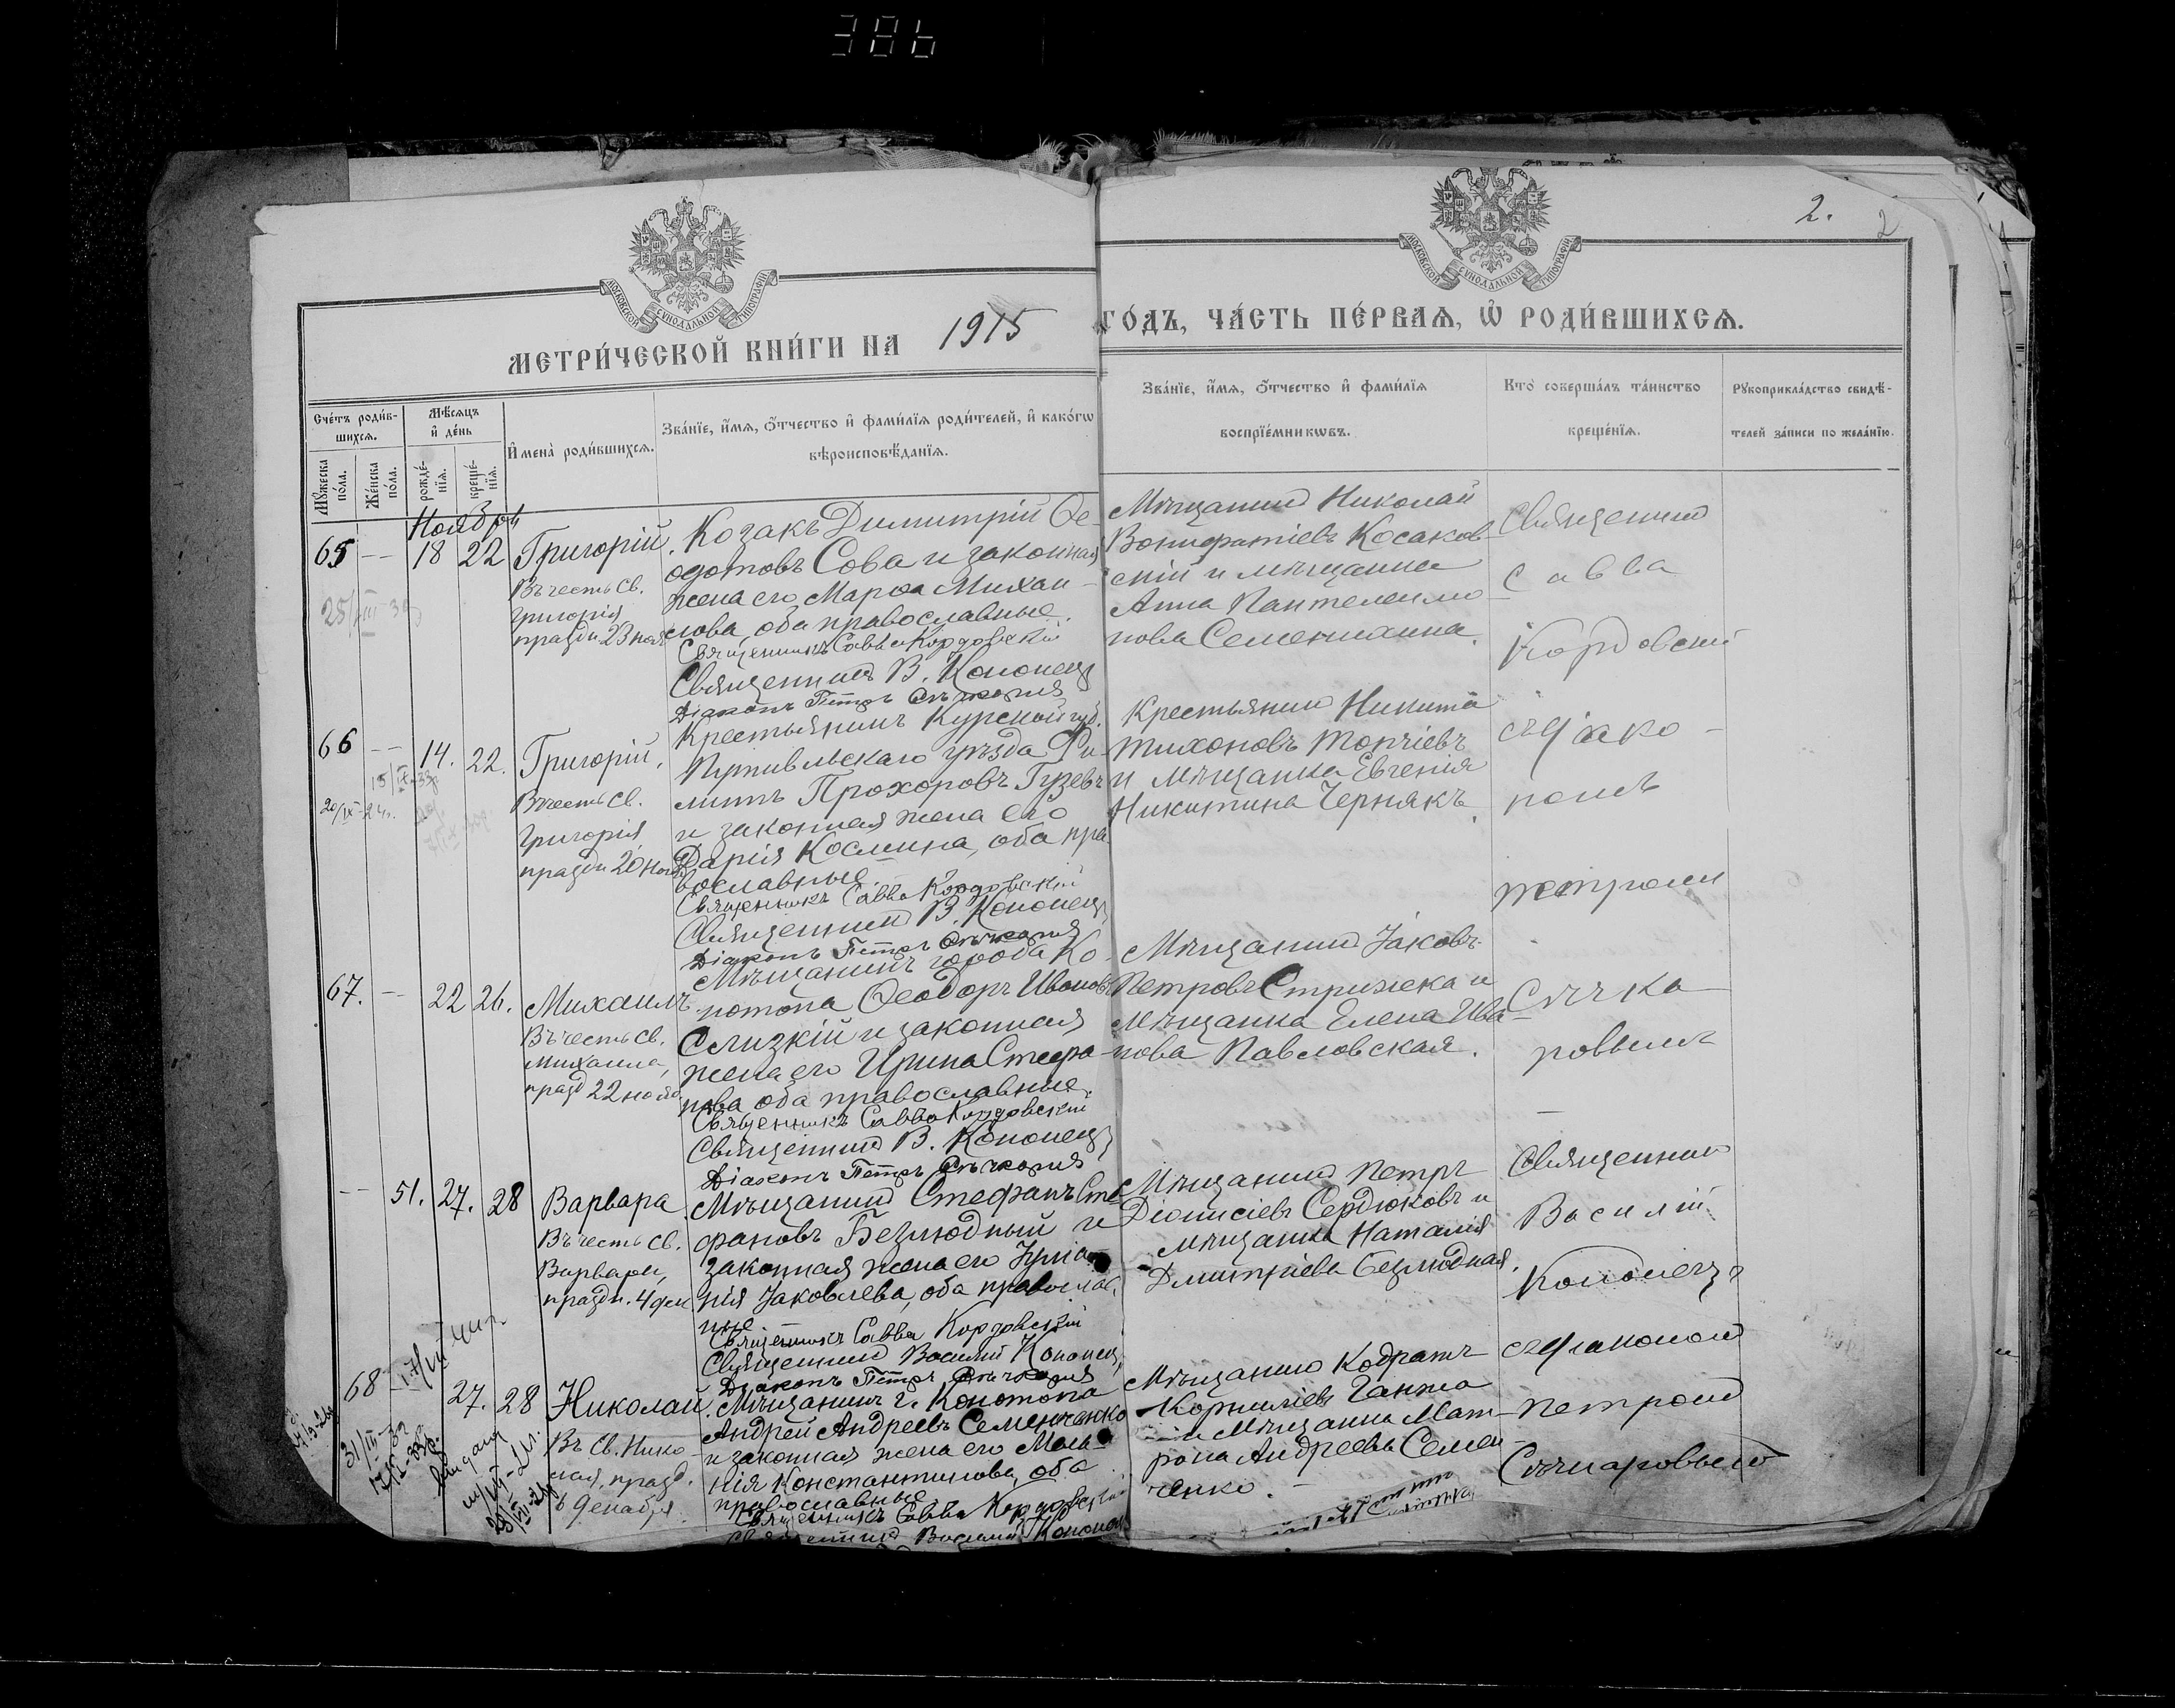 386
2.
2
МОСКОВСКОЙ СУНОДАЛЬНОЙ ТИПОГРАФІИ
МОСКОВСКОЙ СУНОДАЛЬНОЙ ТИПОГРАФІИ
МЕТРИ́ЧЕСКОЙ КНИ́ГИ НА 1915 ГО́ДЪ, ЧА́СТЬ ПЕ́РВАЯ, Ѡ҆ РОДИ́ВШИХСЯ.
Сче́тъ роди́вшихся.
Мꙋ́жеска по́ла.
Же́нска по́ла.
Мѣ́сяцъ и҆ де́нь
рожде́нїя.
креще́нїя.
И҆мена̀ роди́вшихся.
Зва́нїе, и҆́мя, ѻ҆́тчество и҆ фами́лїя роди́телей, и҆ како́гѡ
вѣроисповѣ́данїя.
Зва́нїе, и҆́мя, ѻ҆́тчество и҆ фами́лїя
воспрїе́мникѡвъ.
Кто̀ соверша́лъ та́инство
креще́нїя.
Рꙋкоприкла́дство свидѣ́-
телей за́писи по жела́нїю.
Ноябрь
65 — 18 22
Григорій.
Въ честь св.
Григорія
праздн 23 ноя
Козакъ Димитрій Ѳе-
одотовъ Сова и законная
жена его Марѳа Михаи-
лова, оба православные.
Священникъ Савва Кордовскій
Священникъ В. Кононецъ
Діаконъ Петръ
Мѣщанинъ Николай
Вонифатіевъ Косаков-
скій и мѣщанка
Анна Пантелеимо-
нова Семенихина.
Священникъ
Савва
Кордовскій
66 — 14. 22.
Григорій.
Въ честь св.
Григорія
праздн 20 нояб
Крестьянинъ Курской губ.
Путивльскаго уѣзда Фи-
липъ Прохоровъ Гузевъ
и законная жена его
Дарія Космина, оба пра-
вославные.
Священникъ Савва Кордовскій
Священникъ В. Кононецъ
Діаконъ Петръ
Крестьянинъ Никита
Тихоновъ Топчіевъ
и мѣщанка Евгенія
Никитина Чернякъ.
съ діако-
номъ
Петромъ
67. — 22 26.
Михаилъ
Въ честь св.
Михаила,
празд 22 нояб
Мѣщанинъ города Ко-
нотопа Ѳеодоръ Ивановъ
Слизкій и законная
жена его Ирина Стефа-
нова, оба православные.
Священникъ Савва Кордовскій
Священникъ В. Кононецъ
Діаконъ Петръ
Мѣщанинъ Іаковъ
Петровъ Стрижека и
мѣщанка Елена Ива-
нова Павловская.
— 51. 27. 28
Варвара
Въ честь св.
Варвары,
праздн. 4 дек
Мѣщанинъ Стефанъ Сте-
фановъ Безлюдный и
законная жена его Іуліа-
нія Іаковлева, оба православ-
ные
Священникъ Савва Кордовскій
Священникъ Василій Кононецъ
Діаконъ Петръ
Мѣщанинъ Петръ
Діонисіевъ Сердюковъ и
мѣщанка Наталія
Дмитріева Безлюдная.
Священникъ
Василій
Кононецъ
68 — 27. 28
Николай.
Въ св. Нико-
лая, празд.
6 декабря.
Мѣщанинъ г. Конотопа
Андрей Андреевъ Семенченко
и законная жена его Мела-
нія Константинова, оба
православные
Священникъ Савва Кордовскій
Священникъ Василій Кононецъ
Мѣщанинъ Кодратъ
Корниліевъ Ганжа
и мѣщанка Мат-
рона Андреева Семен-
ченко.
съ діакономъ
Петромъ